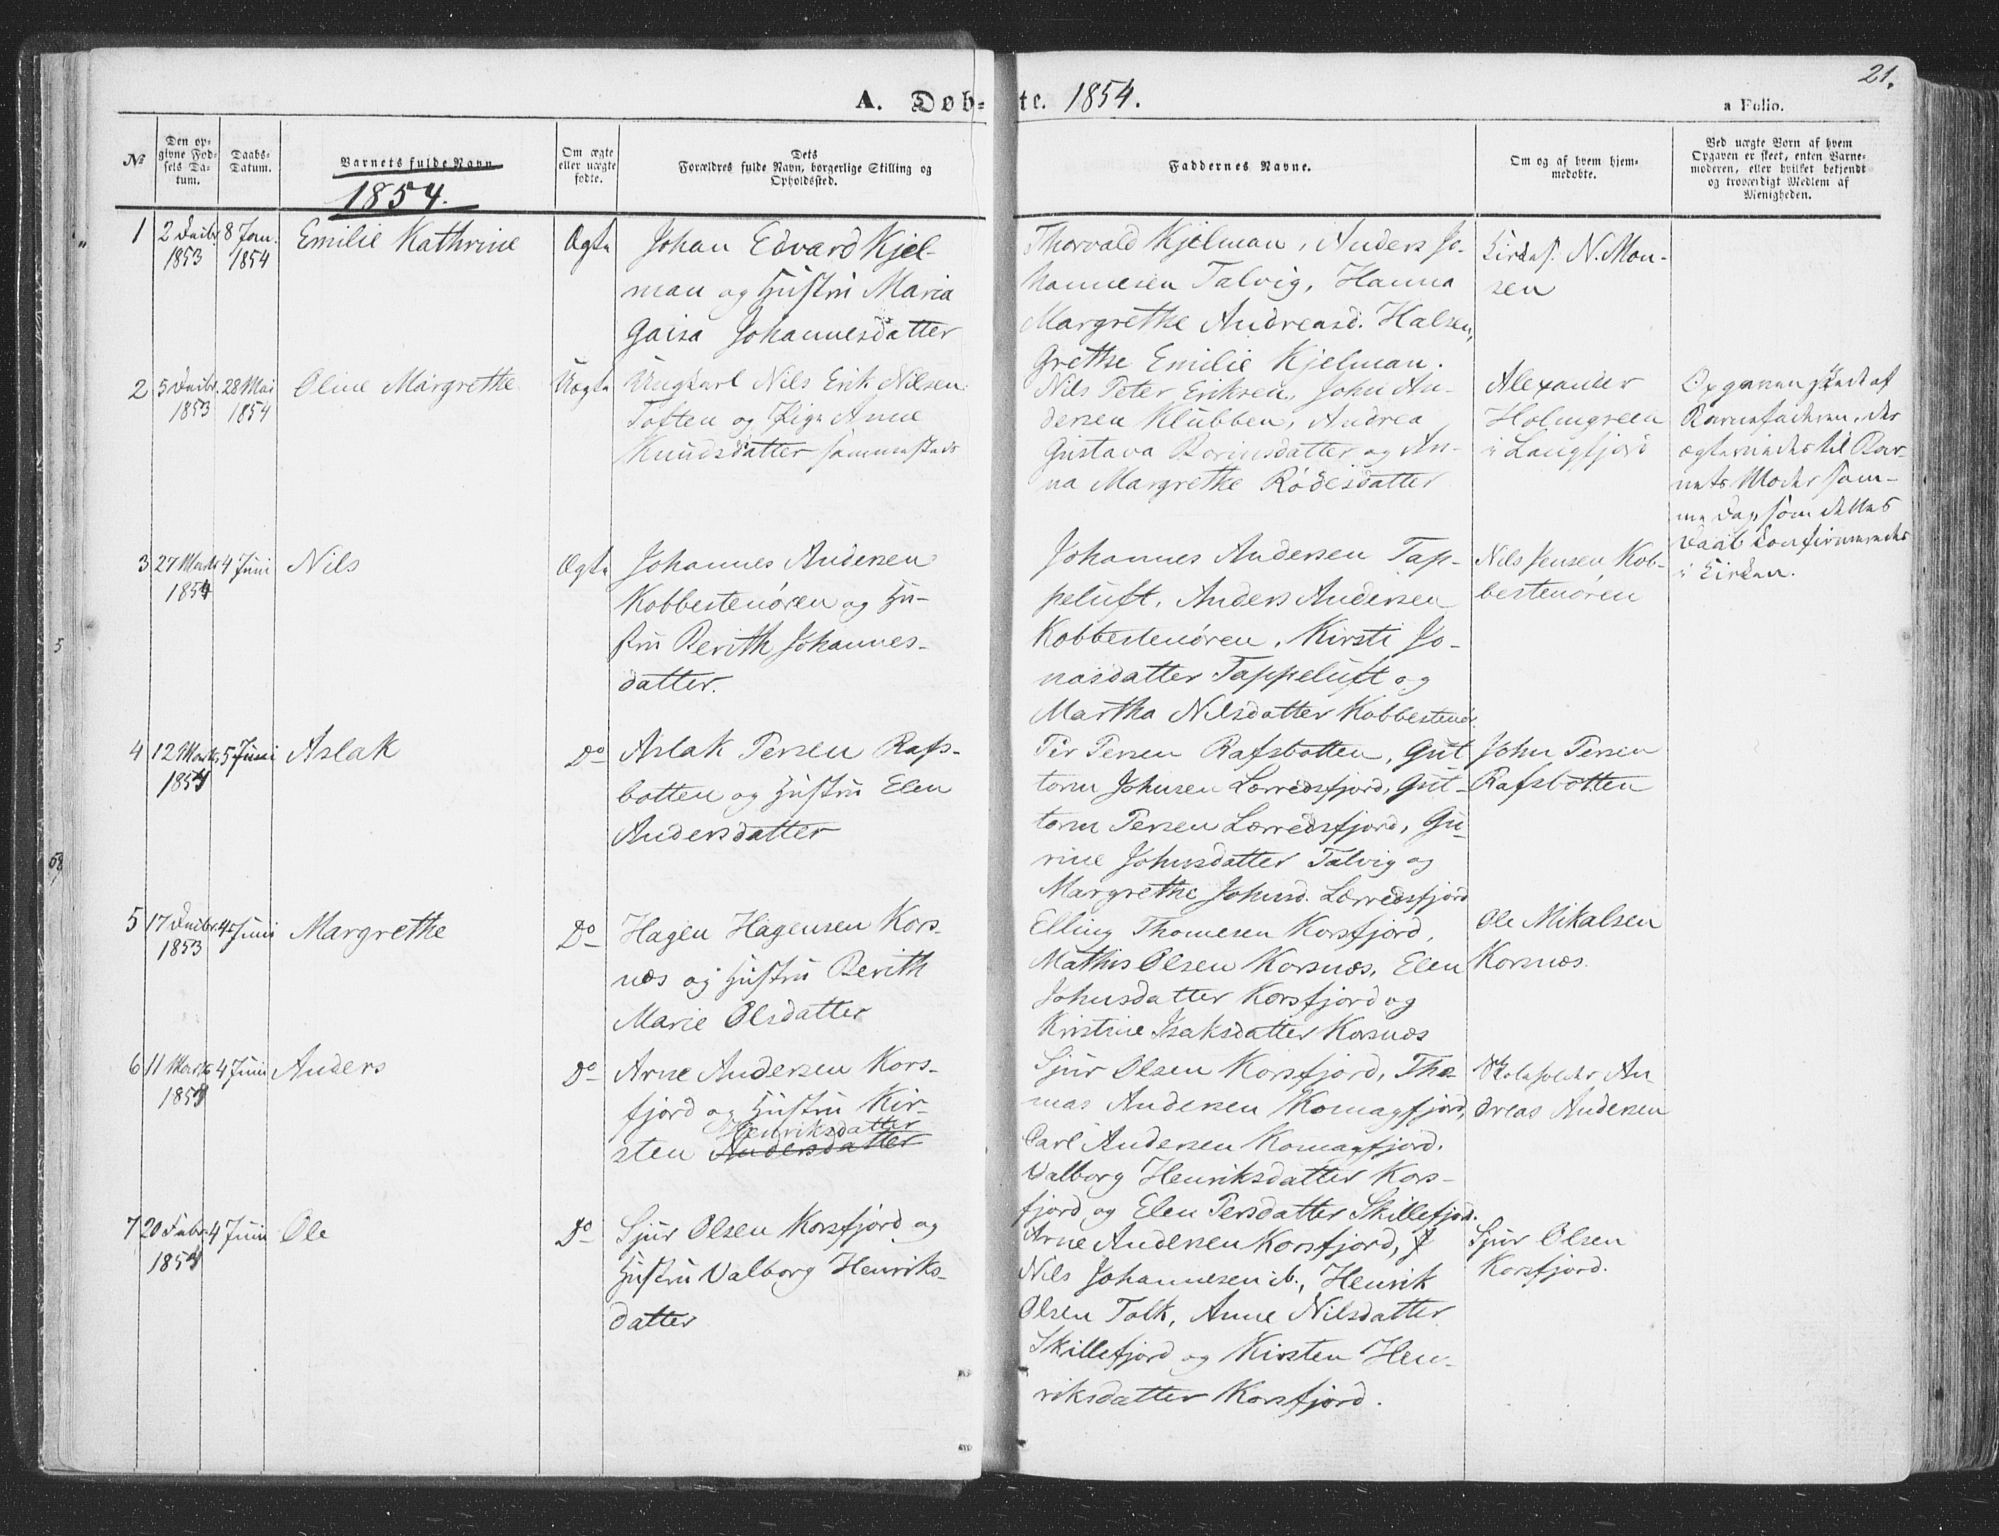 21.
A. Døb-te. 1854.
a Folio.
No
Den op-
givne Fød-
sels Da-
tum.
Daabs-
Datum.
Barnets fulde Navn
1854.
Om ægte
eller uægte
fødte.
Dets
Forældres fulde Navn, borgerlige Stilling og
Opholdssted.
Faddernes Navne.
Om og af hvem hjem-
medøbte.
Ved uægte Børn af hvem
Opgaven er skeet, enten Barne-
moderen, eller hvilket bekjendt
og troværdigt Medlem af
Menigheden.
1
2 Decbr
1853
8 Jan.
1854
Emilie Kathrine
Ægte
Johan Edvard Kjel-
man og Hustru Maria
Gaisa Johannesdatter
Thorvald Kjelman, Anders Jo-
hannesen Talvig, Hanna
Margrethe Andreasd. Halsen,
Grethe Emilie Kjelman.
Kirkes. N. Mon-
sen
2
5 Decbr.
1853
28 Mai
1854
Oline Margrethe
Uægte
Ungkarl Nils Erik Nilsen
Toften og Pige Anne
Knudsdatter sammesteds
Nils Peter Eriksen, John An-
dersen Klubben, Andrea
Gustava Borinsdatter og An-
na Margrethe Rødesdatter
Alexander
Holmgreen
i Langfjord
Opgaven skeet af
Barnefaderen, der
ægteviedes til Bar-
nets Moder sam-
me Dag som dettes
Daab konfirmeredes
i Kirken.
3
27 Marts
1854
4 Juni
Nils
Ægte
Johannes Andersen
Kobbestenøren og Hu-
stru Berith Johannes-
datter.
Johannes Andersen Tap-
peluft, Anders Andersen
Kobbestenøren, Kirsti Jo-
nasdatter Tappeluft og
Martha Nilsdatter Kobbestenør
Nils Jensen Kob-
bestenøren
4
12 Marts
1854
5 Juni
Aslak
Do
Aslak Persen Rafs-
botten og Hustru Elen
Andersdatter
Per Persen Rafsbotten, Gut
torm Johnsen Lærredsfjord, Gut-
torm Persen Lærredsfjord, Gu-
rine Johnsdatter Talvig og
Margrethe Johnsd. Lærredsfjord
John Persen
Rafsbotten
5
17 Decbr.
1853
4 Juni
Margrethe
Do
Hagen Hagensen Kors-
næs og Hustru Berith
Marie Olsdatter
Elling Thomesen Korsfjord,
Mathis Olsen Korsnæs, Elen
Johnsdatter Korsfjord og
Kristine Isaksdatter Korsnæs
Ole Mikalsen
Korsnæs.
6
11 Marts
1854
4 Juni
Anders
Do
Arne Andersen Kors-
fjord og Hustru Kir-
Henriksdatter
sten Andersdatter
Sjur Olsen Korsfjord, Tho-
mas Andersen Komagfjord,
Carl Andersen Komagfjord,
Valborg Henriksdatter Kors-
fjord og Elen Persdatter Skillefjord.
Skoleholder An-
dreas Andersen
7
20 Febr.
1854
4 Juni
Ole
Do
Sjur Olsen Korsfjord og
Hustru Valborg Henriks-
datter
Arne Andersen Korsfjord,
Nils Johannesen ib., Henrik
Olsen Talk, Anne Nilsdatter
Skillefjord og Kirsten Hen-
riksdatter Korsfjord.
Sjur Olsen
Korsfjord.